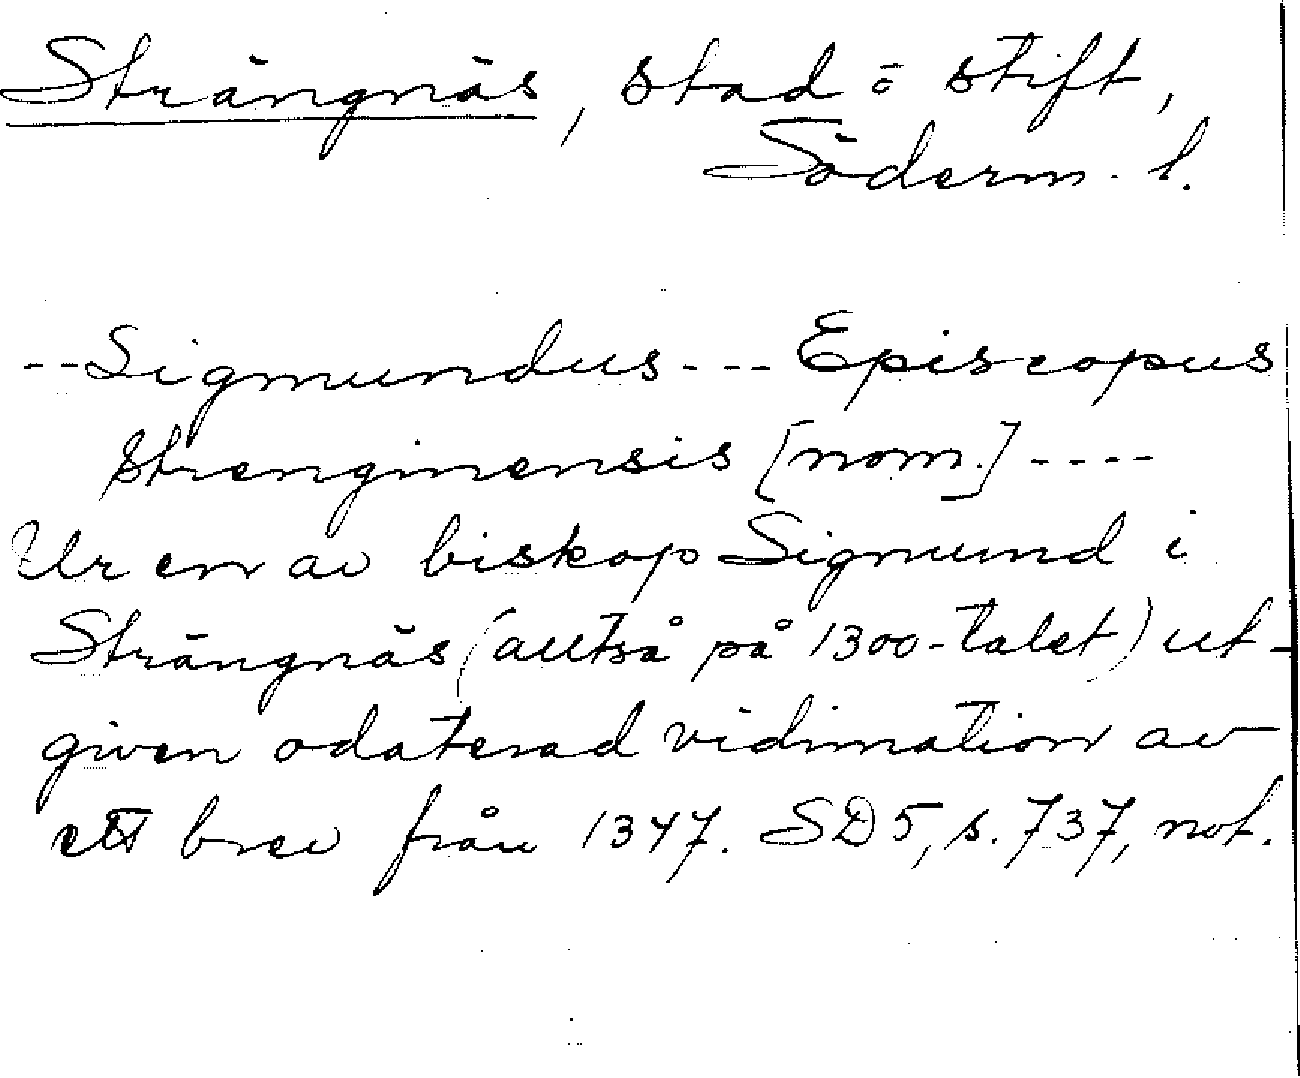 Strängnäs, stad o stift,
Söderm. l.
--Sigmundus--- Episcopus
strenginensis [nom.]----
Ur en av biskop Sigmund i
Strängnäs (alltså på 1300-talet) ut-
given odaterad vidimation av
ett brev från 1347. SD5, s. 737, not.